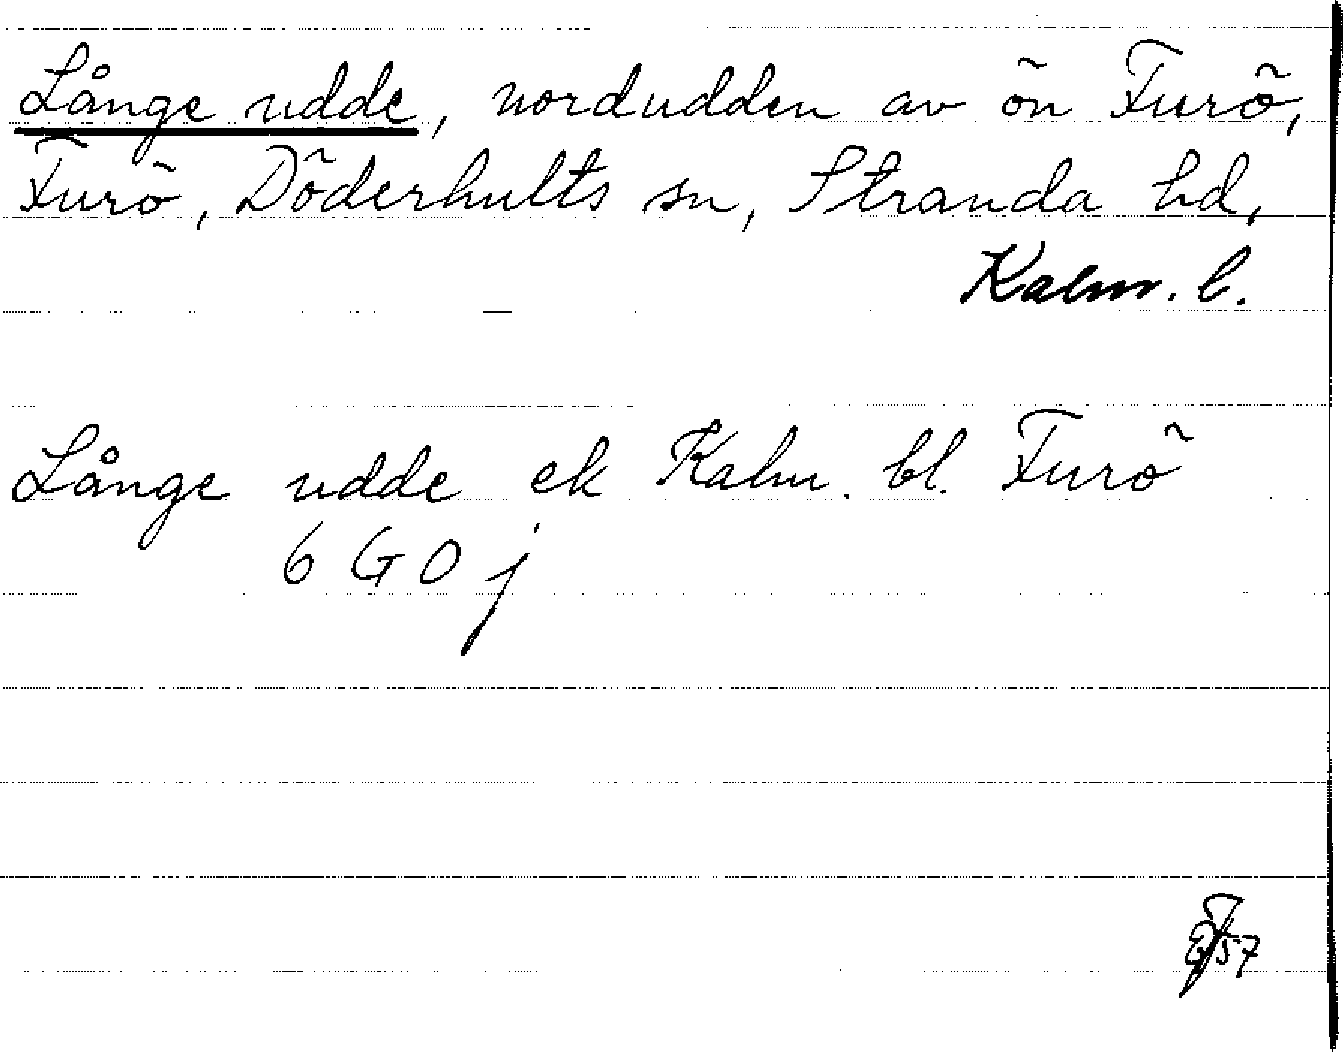 Långe udde, nordudden av ön Furö,
Furö, Döderhults sn, Stranda hd,
Kalm. l.
Långe udde ek Kalm. bl. Furö
6 G O j
57